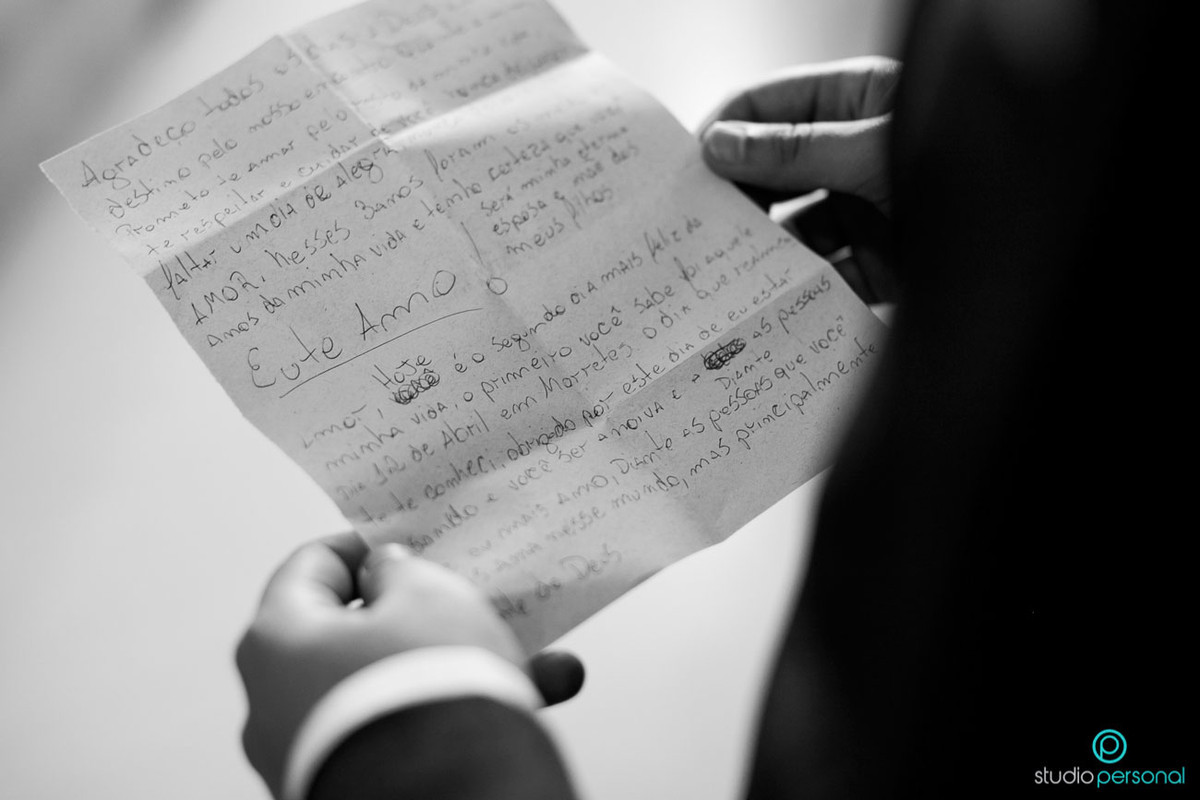 Agradeço todos os dias a Deus e
destino pelo nosso encontro
Prometo te amar pelo
te respeitar e cuidar de você
faltar um dia de alegria
AMOR, nesses 3 anos foram os
anos da minha vida e tenho certeza que você
será minha eterna
esposa e mãe dos
meus filhos
Eu te Amo
Amor, Hoje é o segundo dia mais feliz da
minha vida, o primeiro você sabe foi aquele
Dia 12 de Abril em Morretes o dia que realmente
te conheci, obrigado por este dia de eu estar
e você ser a noiva e
Diante as pessoas
eu mais Amo, Diante as pessoas que você
nesse mundo, mas principalmente
de Deus
studiopersonal